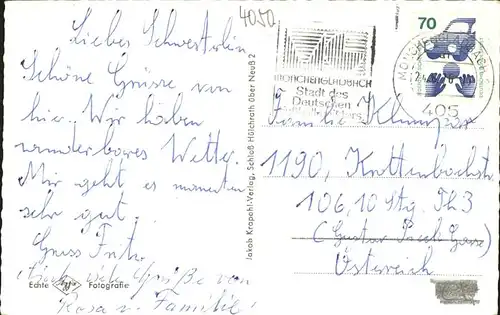 4050
Liebes Schwesterlein
Schöne Grüsse von
hier. Wir haben
wunderbares Wetter.
Mir geht es momentan
sehr gut.
Gruss Fritz
Auch viele Grüße von
Rosa u. Familie
Echte Fotografie
Jakob Krapohl-Verlag, Schloß Hülchrath über Neuß 2
MÖNCHENGLADBACH
Stadt des
Deutschen
70
MÖNCHENGLADBACH
405
Familie
1190, Krottenbachstr.
106, 10 Stg.
Österreich